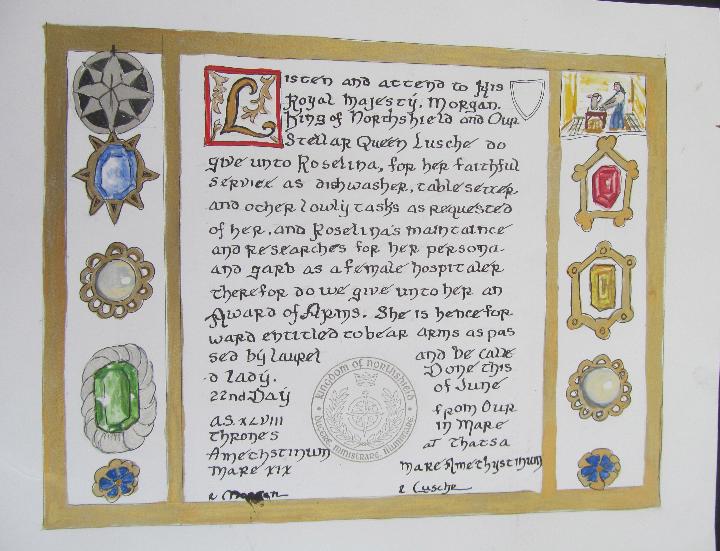 Listen and attend to His
Royal Majesty, Morgan.
King of Northshield and Our
Stellar Queen Lusche do
give unto Roselina, for her faithful
service as dishwasher, table setter
and other lowly tasks as requested
of her, and Roselina's maintaince
and researches for her persona
and garb as a female hospitaler
therefor do we give unto her an
Award of Arms. She is hencefor
ward entitled to bear arms as pas
sed by laurel and be calle
d lady. Done this
22nd Day of June
A.S. XLVIII from Our
thrones in Mare
Amethstinum at Thatsa
Mare XIX Mare Amethystinum
Morgan Lusche
Kingdom of Northshield
Ducere, Ministrare, Illuminare